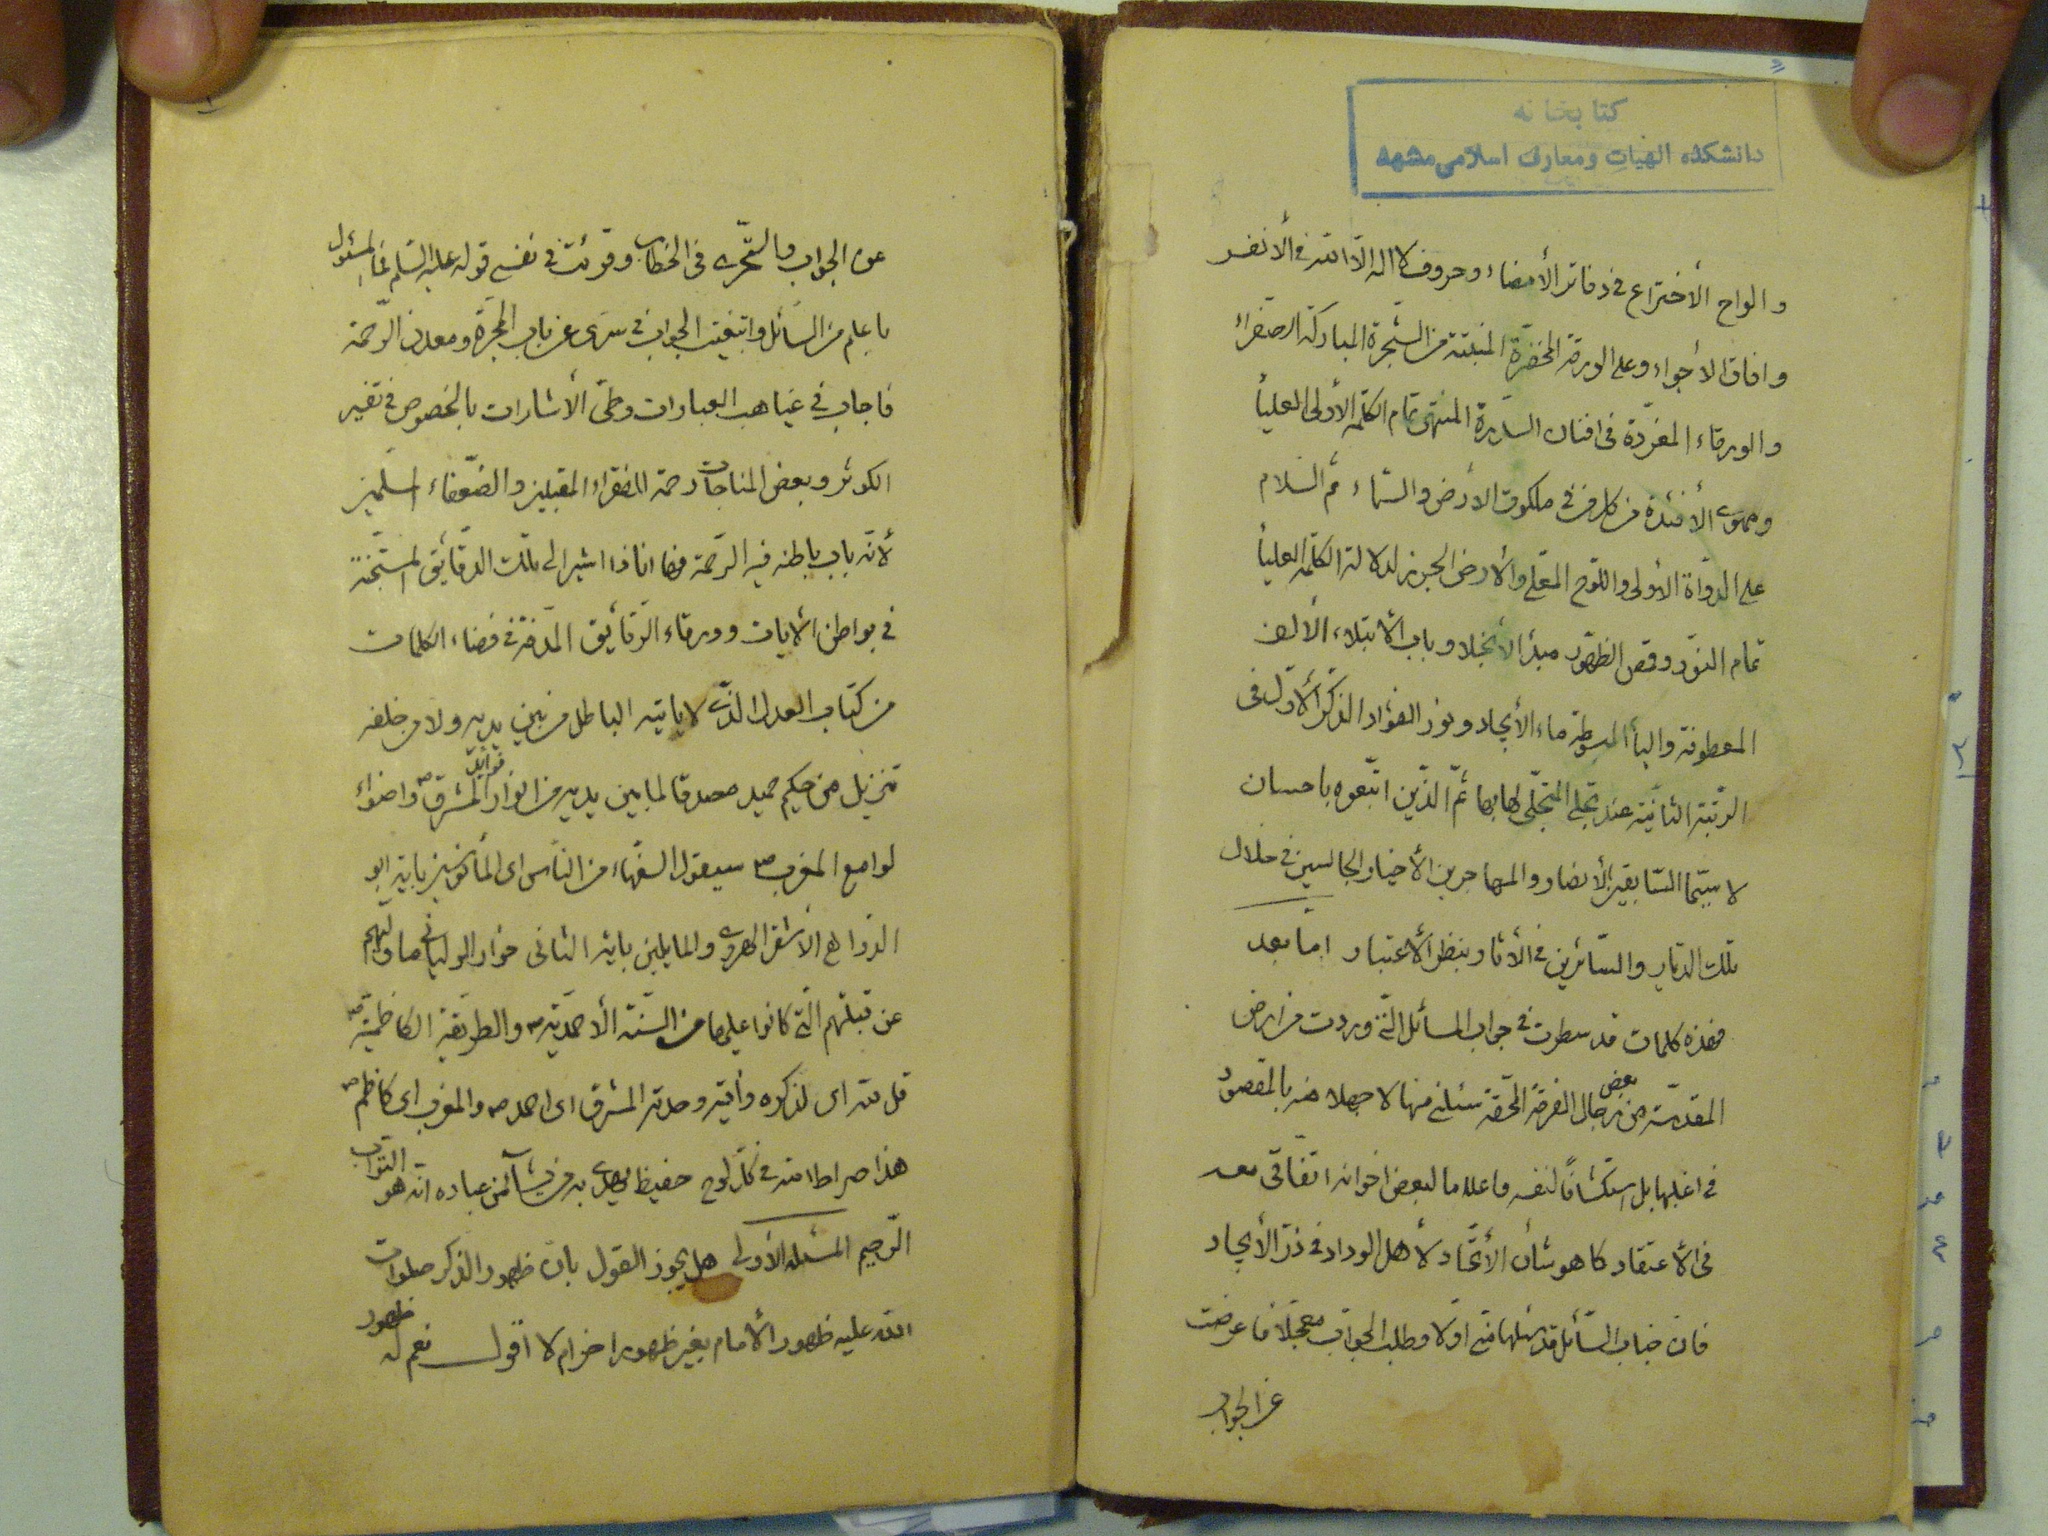 كتابخانه
دانشكده الهيات و معارف اسلامى مشهد
والواح الأختراع فى دفاتر الأمضاء وحروف لا اله الا الله فى الأنفس
وافاق الأجواء وعلى الورقة المخضرّة المنبتة من الشّجرة المباركة الصّفراء
والورقاء المغرّدة فى افنان السّدرة المنتهى تمام الكلمة الأولى العليأ
الأفئدة من كل من فى ملكوت الارض والسّماء ثم السّلام
على الدّواة الاولى واللّوح المعلّى والأرض الجرز لدلالة الكلمة العليأ
تمام النّور وقمص الظّهور مبدأ الأنجلاء وباب الأبتلاء الألف
المعطوفة والبأ المبسوطة ماء الأيجاد ونور الفؤاد الذّكر الأوّل فى
الرّتبة الثانيّة عند تجلّى المتجلّى لها بها ثمّ الذّين اتّبعوه باحسان
لا سيّما السّابقين الأنصار والمهاجرين الأخيار الجالسين فى خلال
تلك الدّيار والسّائرين فى الأثار بنظر الأعتبار امّا بعد
فهذه كلمات قد سطرت فى جواب المسائل التّى وردت من ارض
المقدّسة من بعض رجال الفرقة المحقّة سئلنى منها لا جهلا منه بالمقصود
فى اغلبها بل استكشافًا لنفسه واعلاما لبعض اخوانه اتّفاقى معه
فى الأعتقاد كما هو شأن الأتّحاد لأهل الوداد فى ذرّ الأيجاد
فانّ جناب السّائل قد سئلها منّى اوّلا وطلب الجواب معجّلاً فاعرضت
عن الجواب
عن الجواب والتّحرّى فى الخطاب وقرئت فى نفسى قوله عليه السّلم فما المسئول
باعلم من السّائل وابتغيت الجواب فى سرّى عن باب ومعدن الرّحمة
فاجاب فى غياهب العبارات وطىّ الأشارات بالخصوص فى تفسير
الكوثر وبعض المناجات رحمة للفقراء المقبلين والضّعفاء المسلّمين
لأنّه باب باطنه فيه الرّحمة فها انا ذا اشير الى تلك الدّقائق المستجنّة
فى بواطن الأيات وورقاء الرّقائق فى فضاء الكلمات
من كتاب العدل الذّى لا ياتيه الباطل من بين يديه ولا من خلفه
تنزيل من حكيم حميد مصدقا لما بين يديه من انوار فوايد المشرق واضواء
لوامع المغرب سيقول السّفهاء من الناس اى المأنوسين باية ابو
الدّواهى الأشقر الهروى والمايلين باية الثانى خوار ما وليهم
عن قبلتهم التّى كانوا عليها من السّنّة الأحمديّة والطريقة الكاظميّة
قل لله اى لذكره وأيته وحدته المشرق اى احمد والمغرب اى كاظم
هذا صراط الله فى كلّ لوح حفيظ يهدى به من يشآء من عباده انّه هو التّواب
الرّحيم المسئلة الأولى هل يجوز القول بانّ ظهور الذكر صلوات
الله عليه ظهور الأمام بغير ظهور اخر ام لا اقول نعم له ظهور